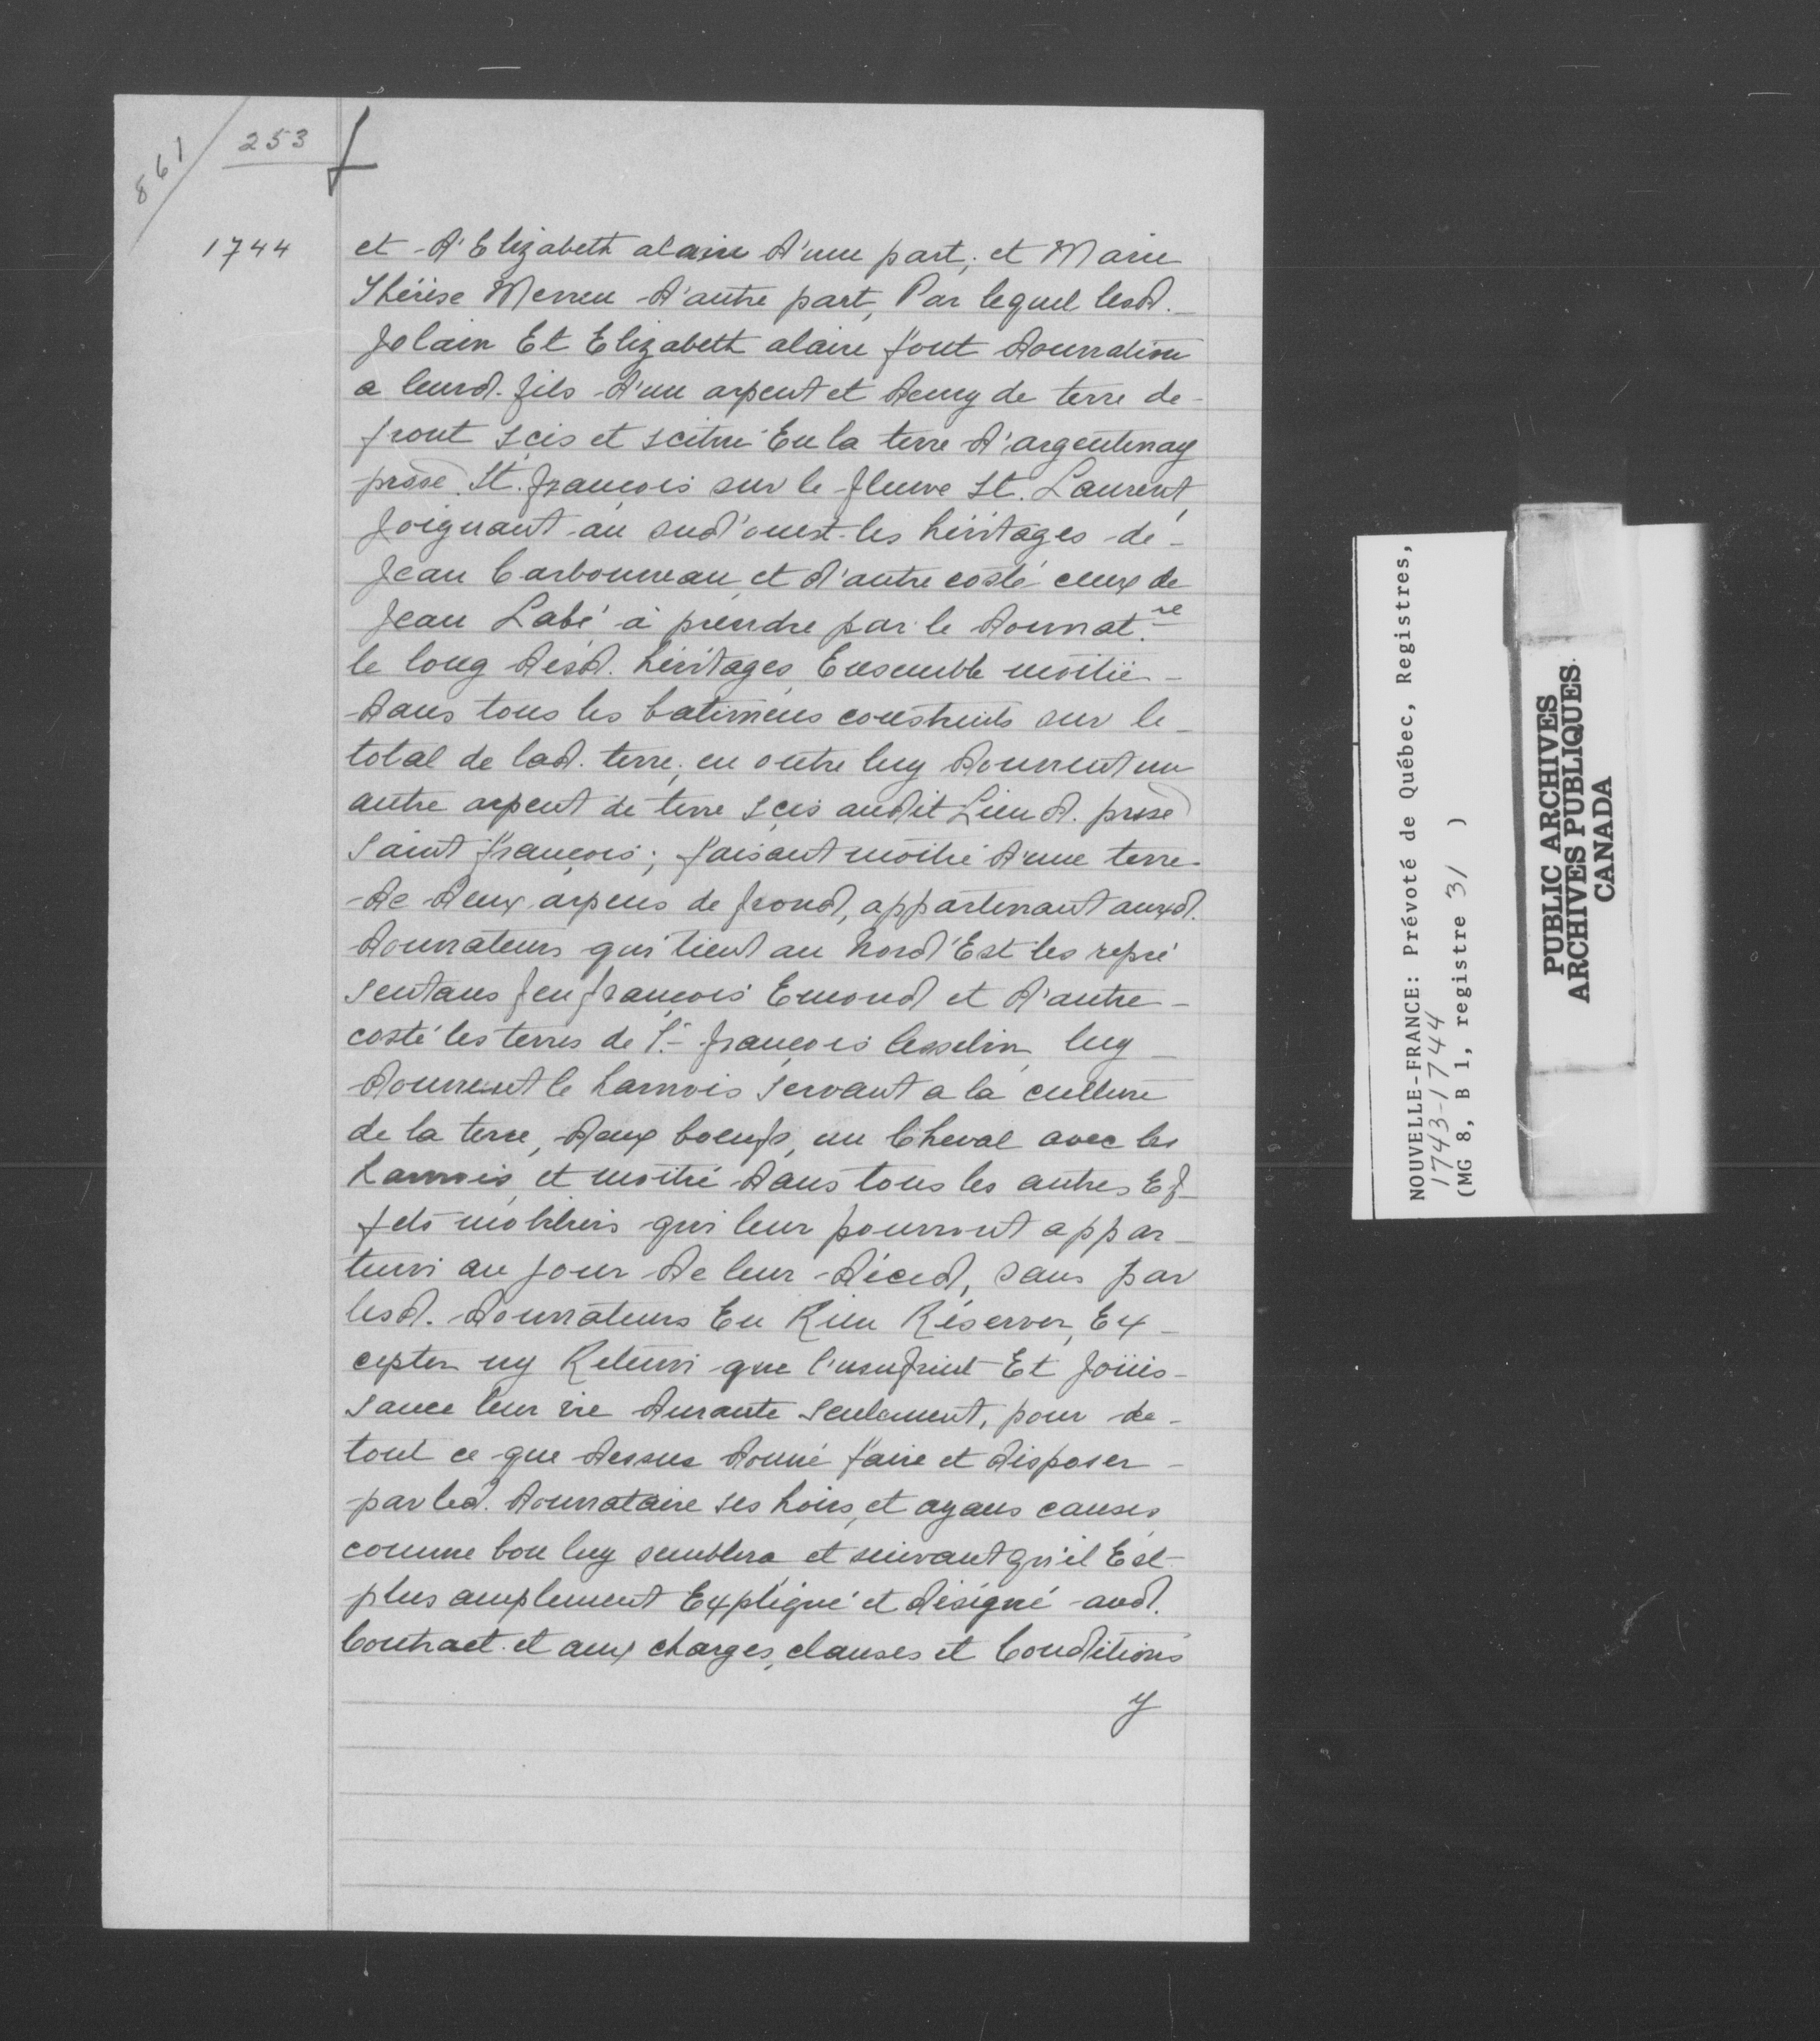 861
253
1744
et d'Elizabeth alaire d'une part; et Marie
Thérèse Merreu d'autre part, Par lequel lesd.
Jolain Et Elizabeth alaire font donnation
a leurd. fils d'un arpent et demy de terre de
front scis et scitué En la terre d'argentenay
prsse. St. françois sur le fleuve St. Laurent,
Joignant au sud'ouest les héritages de
Jean Carbonneau, et d'autre costé ceux de
Jean Labé à prendre par le donnat.re
le long desd. héritages, Ensemble moitié
dans tous les batimens construits sur le
total de lad. terre; en outre luy donnent un
autre arpent de terre scis audit Lieu d. prsse
Saint françois; faisant moitié d'une terre
de deux arpens de frond, appartenant auxd.
donnateurs qui tient au Nord'Est les repré
sentans feu françois Emond et d'autre
costé les terres de St. françois Asselin, luy
donnent le harnois servant a la culture
de la terre, deux boeufs, un Cheval avec les
harnois, et moitié dans tous les autres Ef-
fets mobiliers qui leur pourront appar-
tenir au jour de leur déced, sans par
lesd. donnateurs En Rien Réserver, Ex-
cepter ny Retenir que l'usufruit Et Joüis-
sance leur vie durante seulement, pour de
tout ce que dessus donné faire et disposer
par led. donnataire ses hoirs, et ayans causes
comme bon luy semblera et suivant qu'il Est
plus amplement Expliqué et désigné aud.
Contract et aux charges, clauses et Conditions
y
NOUVELLE-FRANCE: Prévoté de Québec, Registres,
1743-1744
(MG 8, B 1, registre 31 )
PUBLIC ARCHIVES
ARCHIVES PUBLIQUES
CANADA